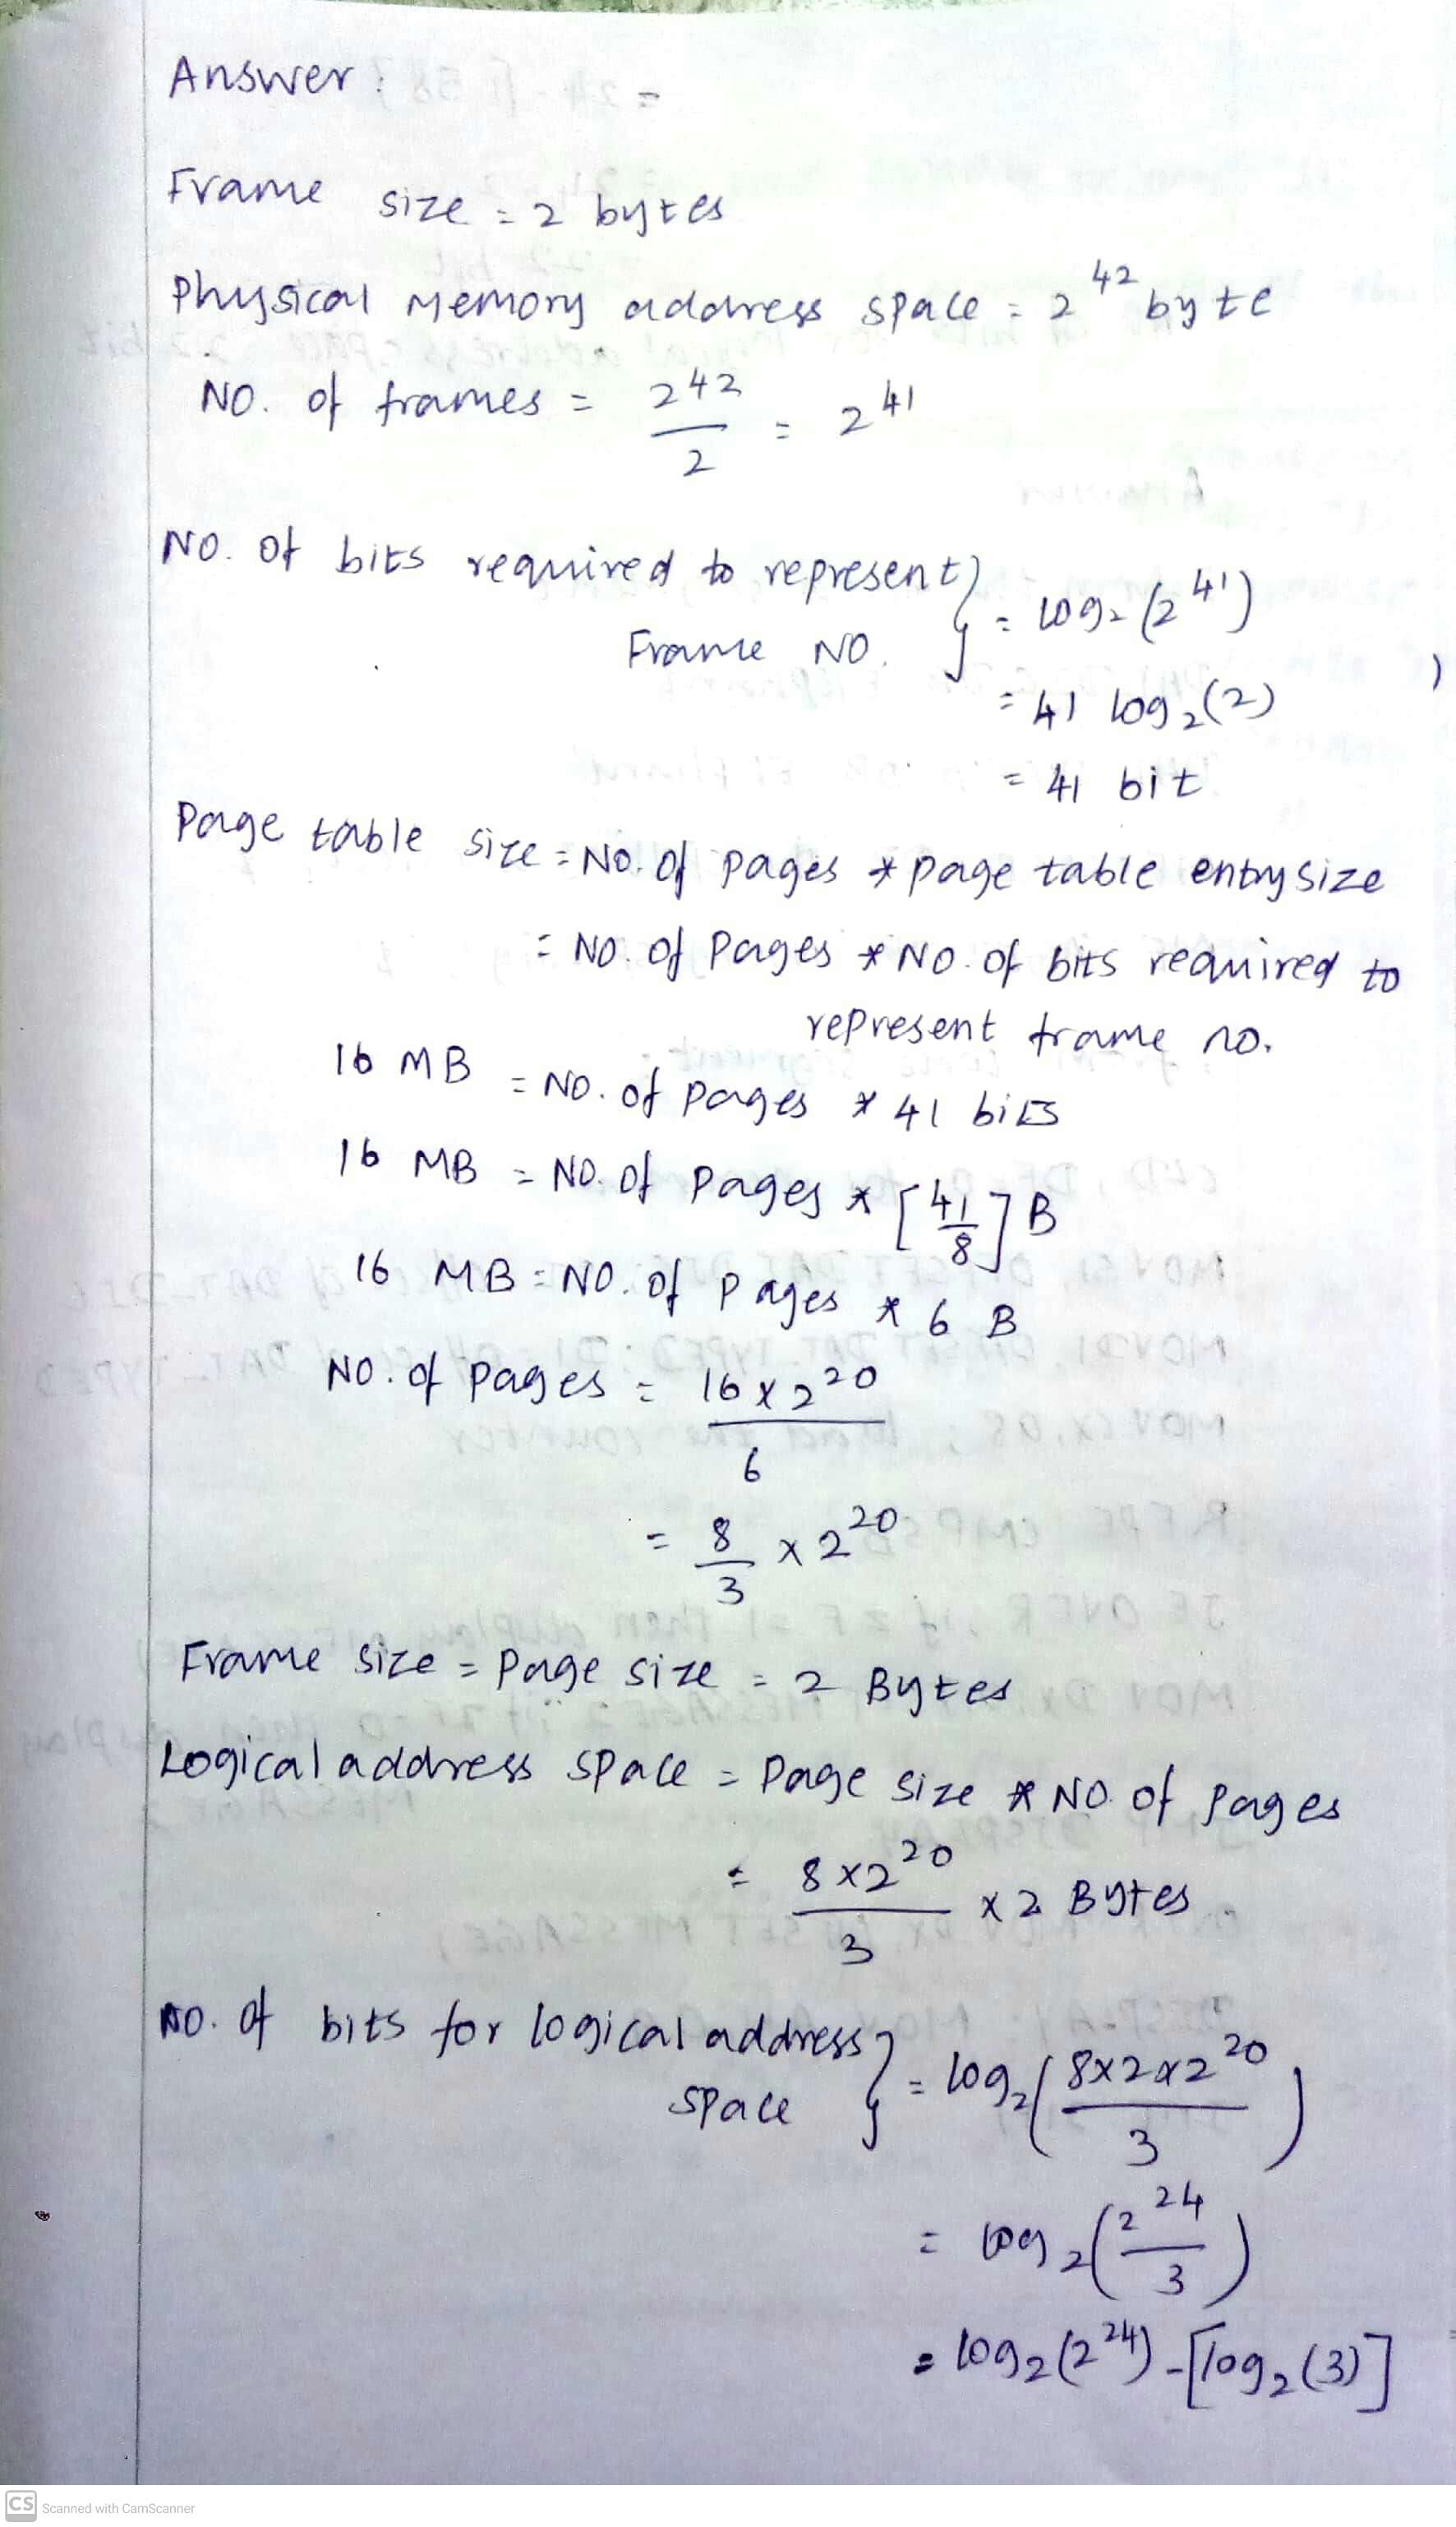 Answer:
Frame size = 2 bytes
Physical Memory address space = 2^42 byte
NO. of frames = 2^42 / 2 = 2^41
NO. of bits required to represent } = log2 (2^41)
Frame NO.
= 41 log2(2)
= 41 bit
Page table size = NO. of pages * page table entry size
= NO. of Pages * NO. of bits required to
represent frame no.
16 MB = NO. of pages * 41 bits
16 MB = NO. of Pages * [41/8] B
16 MB = NO. of Pages * 6 B
NO. of pages = 16 x 2^20 / 6
= 8/3 x 2^20
Frame size = Page size = 2 Bytes
Logical address space = Page size * NO. of pages
= 8 x 2^20 / 3 x 2 Bytes
NO. of bits for logical address } = log2 (8x2x2^20 / 3)
space
= log2 (2^24 / 3)
= log2 (2^24) - [log2 (3)]
CS Scanned with CamScanner